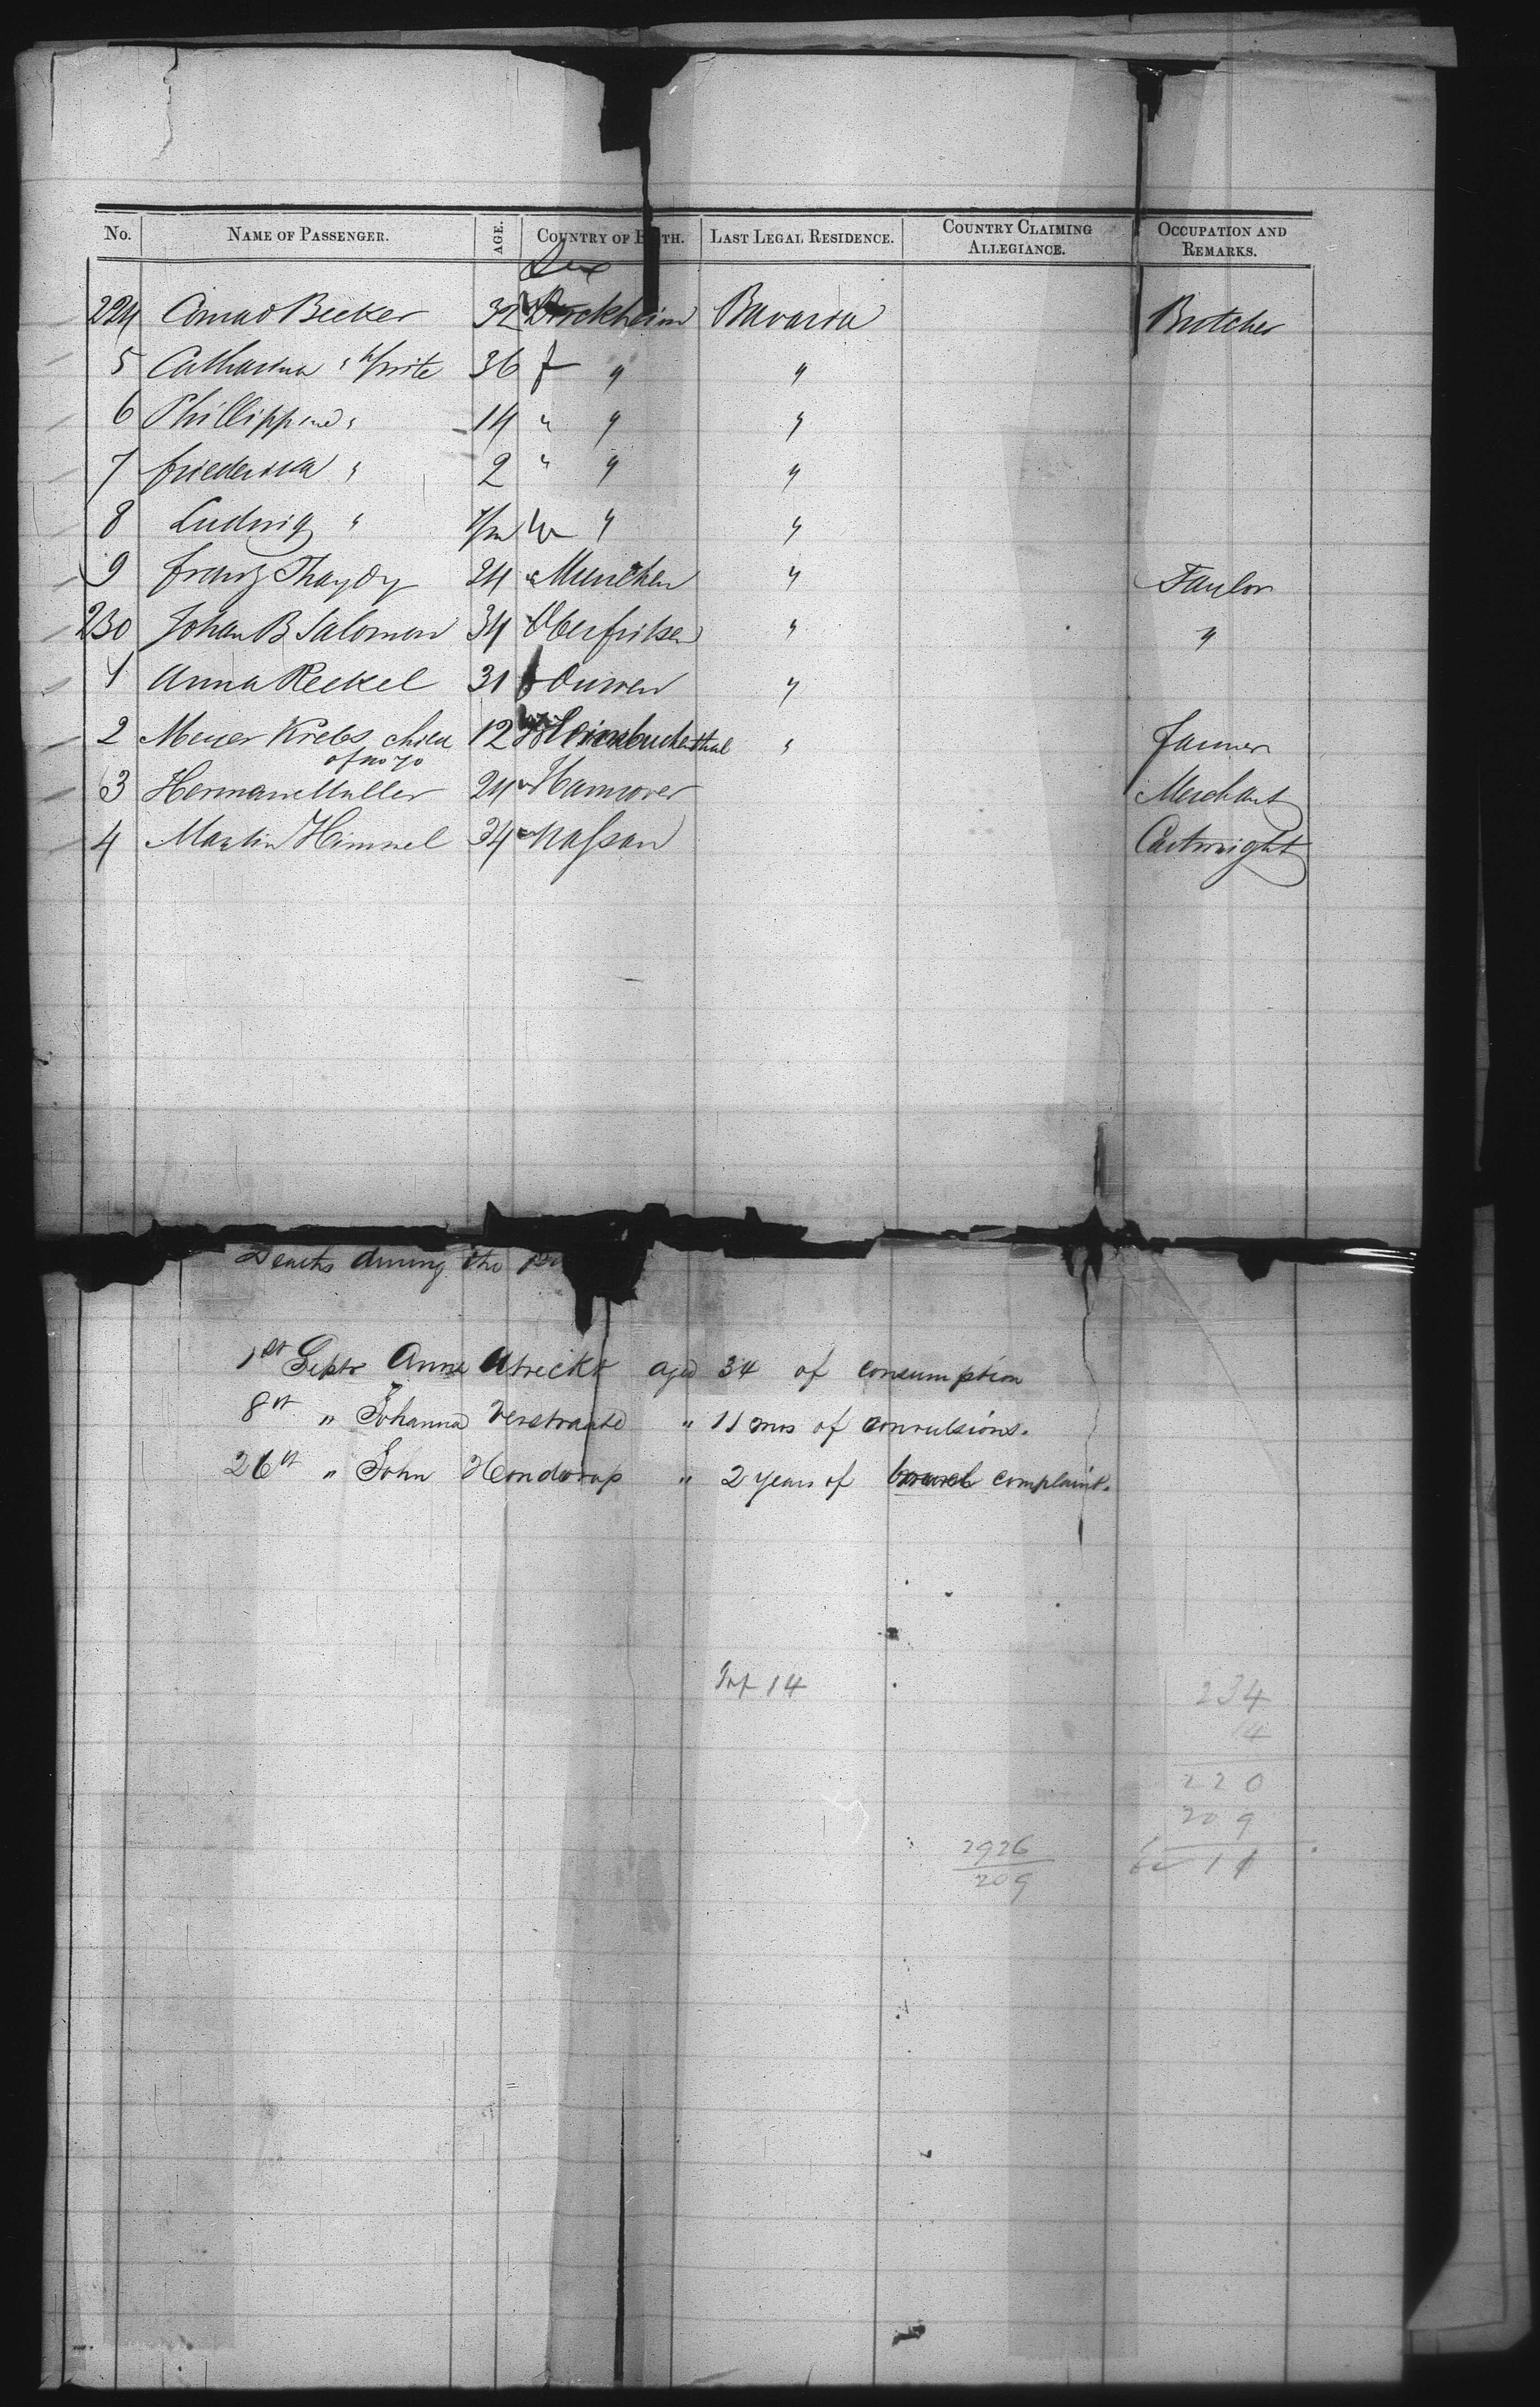 No. NAME OF PASSENGER. AGE. COUNTRY OF B TH. LAST LEGAL RESIDENCE. COUNTRY CLAIMING ALLEGIANCE. OCCUPATION AND REMARKS.
Sex
224 Conrad Becker 32 Bavaria Butcher
5 Catharina " 36 f " "
6 Phillippine " 14 " " "
7 Friederika " 2 " " "
8 Ludwig " " "
9 Franz 24 Munchen " Taylor
230 Johan B Salomon 34 " "
1 Anna Reckel 31 f "
2 Meyer Krebs child 12 " Farmer
of no 70
3 Herman Muller 24 Hannover Merchant
4 Martin Himmel 34 Nassau Cartwright
Deaths during the
1st Septr Anna aged 34 of consumption
8th " Johanna Verstraate " 11 mos of convulsions.
26th " John " 2 years of complaint.
Inf 14
234
14
220
209
11
2926
209